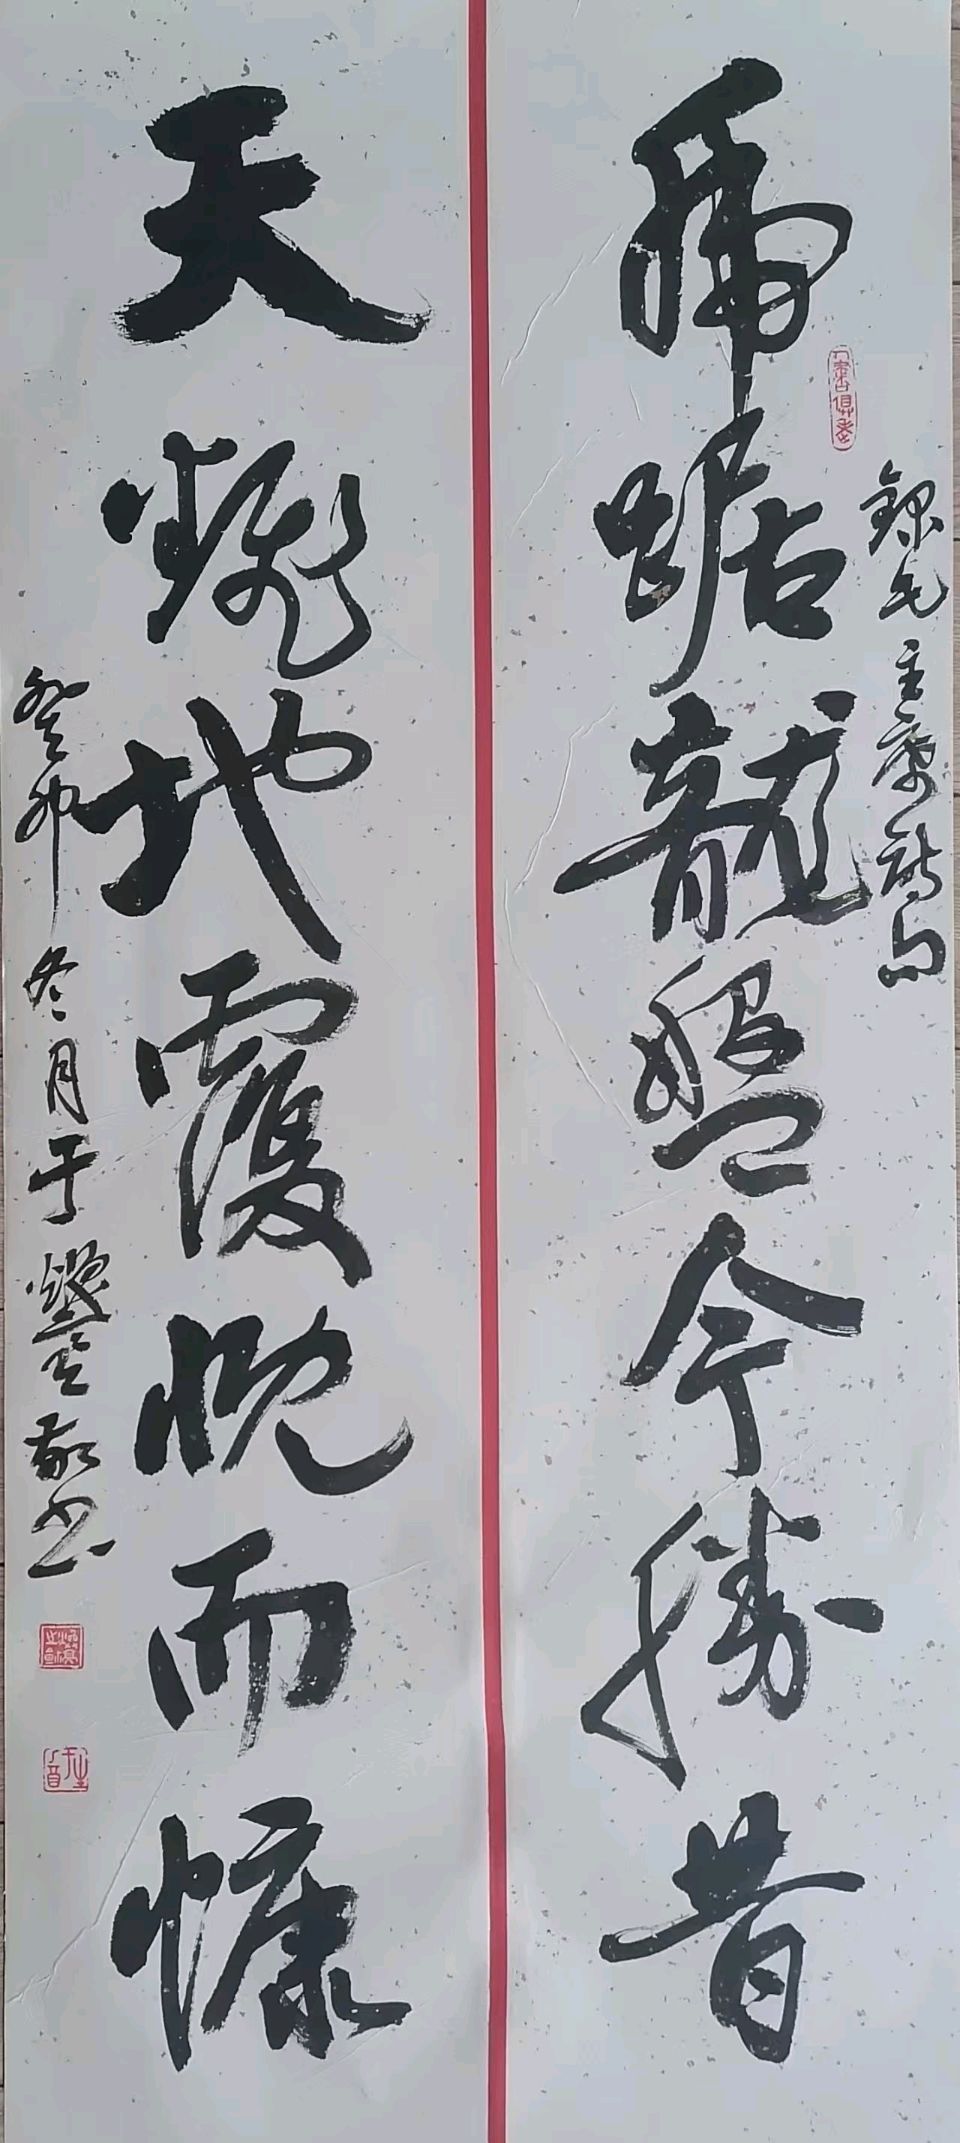 虎踞龍盤今勝昔
錄毛主席詩句
天翻地覆慨而慷
癸卯冬月于
敬書